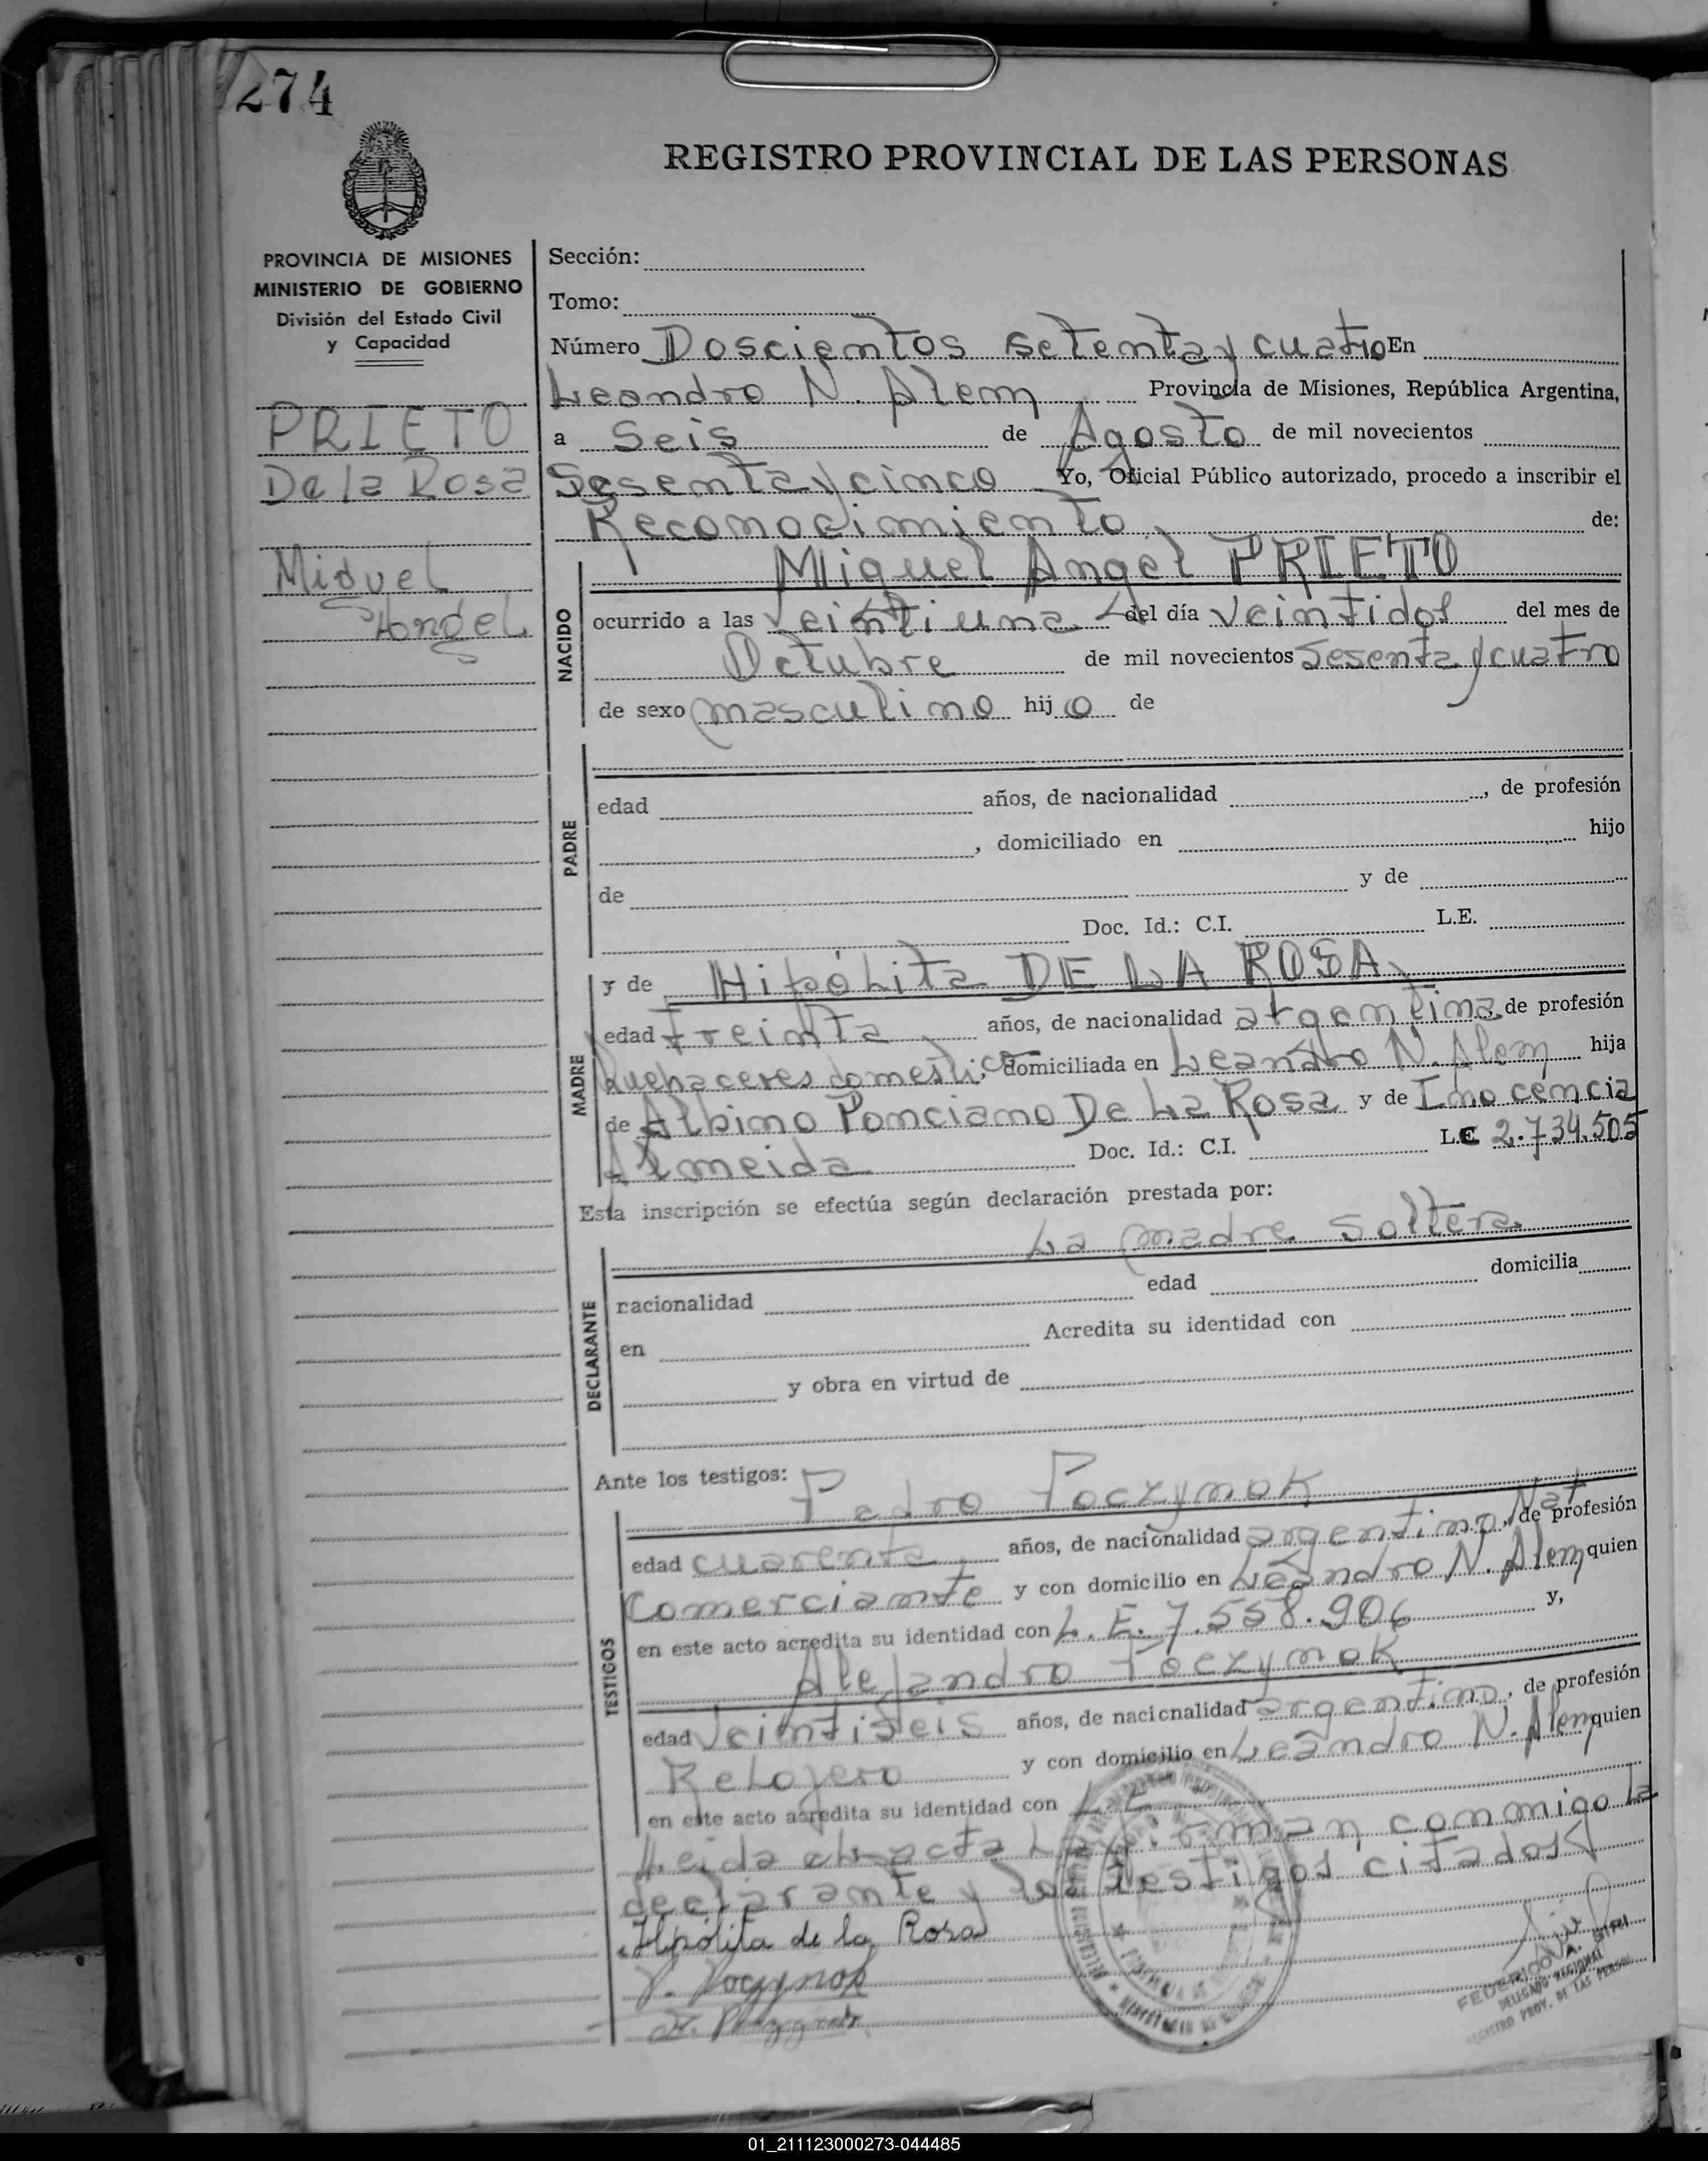 274
REGISTRO PROVINCIAL DE LAS PERSONAS
PROVINCIA DE MISIONES
MINISTERIO DE GOBIERNO
División del Estado Civil
y Capacidad
PRIETO
De la Rosa
Miguel
Angel
Sección:
Tomo:
Número Doscientos setenta y cuatro En
Leandro N. Alem Provincia de Misiones, República Argentina,
a Seis de Agosto de mil novecientos
Sesenta y cinco Yo, Oficial Público autorizado, procedo a inscribir el
Reconocimiento de:
NACIDO
Miguel Angel PRIETO
ocurrido a las veintiuna del día veintidos del mes de
Octubre de mil novecientos Sesenta y cuatro
de sexo masculino hijo de
PADRE
edad años, de nacionalidad , de profesión
, domiciliado en hijo
de y de
Doc. Id.: C.I. L.E.
MADRE
y de Hipólita DE LA ROSA
edad treinta años, de nacionalidad argentina, de profesión
Quehaceres domestico, domiciliada en Leandro N. Alem hija
de Albino Ponciano De La Rosa y de Inocencia
Almeida Doc. Id.: C.I. L.C 2.734.505
Esta inscripción se efectúa según declaración prestada por:
DECLARANTE
La madre soltera
nacionalidad edad domicilia
en Acredita su identidad con
y obra en virtud de
Ante los testigos: Pedro Poczynok
TESTIGOS
edad cuarenta años, de nacionalidad argentino Nat, de profesión
Comerciante y con domicilio en Leandro N. Alem quien
en este acto acredita su identidad con L.E. 7.558.906 y,
Alejandro Poczynok
edad veintiseis años, de nacionalidad argentino, de profesión
Relojero y con domicilio en Leandro N. Alem quien
en este acto acredita su identidad con L.E.
Leida el acta La firman conmigo la
declarante y los testigos citados
Hipólita de la Rosa
P. Poczynok
FEDERICO A.
DELEGADO REGIONAL
REGISTRO PROV. DE LAS PERSON
01_211123000273-044485